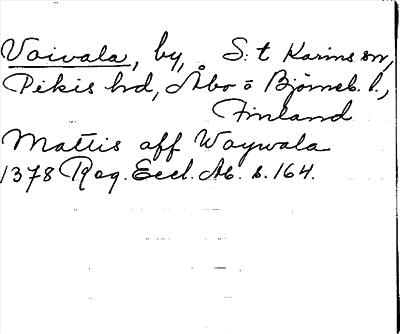 Voivala, by, S:t Karins sn,
Pikis hd, Åbo o Björneb. l.,
Finland
Mattis aff Waywala
1378 Reg. Eccl. Ab. s. 164.